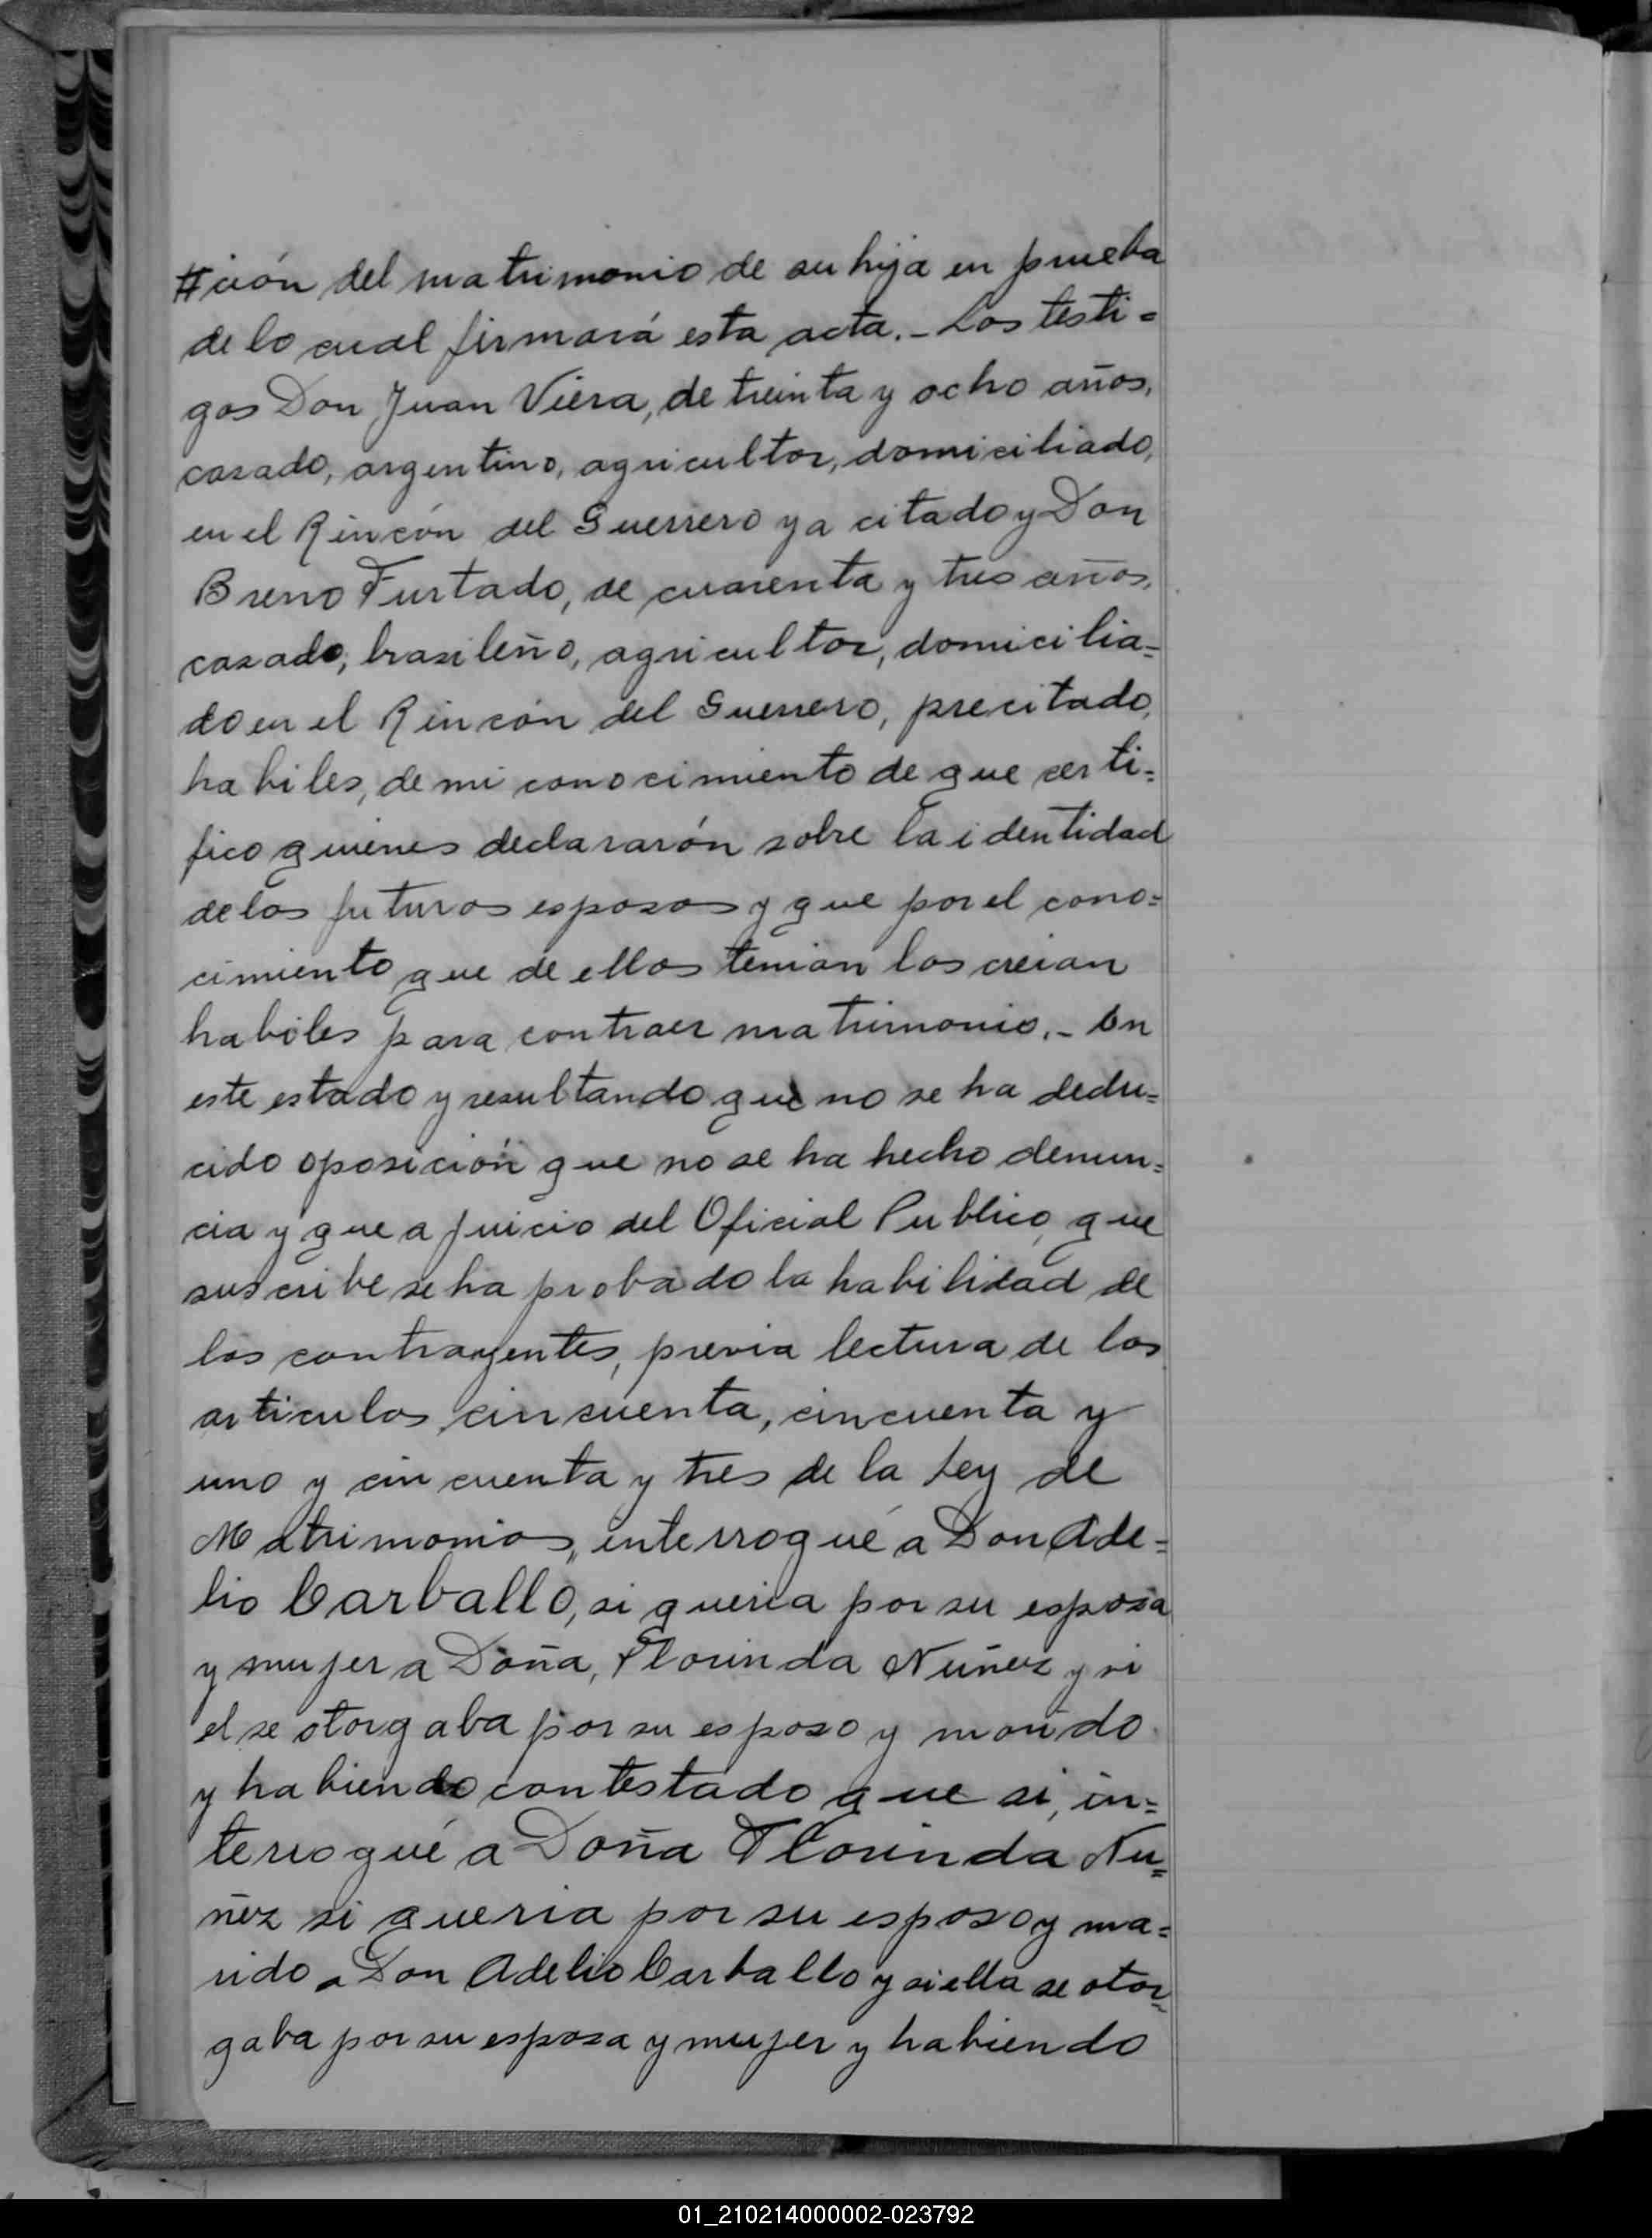 #ción del matrimonio de su hija en prueba
de lo cual firmará esta acta.- Los testi=
gos Don Juan Viera, de treinta y ocho años,
casado, argentino, agricultor, domiciliado,
en el Rincón del Guerrero ya citado y Don
Breno Furtado, de cuarenta y tres años,
casado, brasileño, agricultor, domicilia=
do en el Rincón del Guerrero, precitado,
habiles, de mi conocimiento de que certi=
fico quienes declararón sobre la identidad
de los futuros esposos y que por el cono=
cimiento que de ellos tenian los creian
habiles para contraer matrimonio.- En
este estado y resultando que no se ha dedu=
cido oposición que no se ha hecho denun=
cia y que a juicio del Oficial Publico, que
suscribe se ha probado la habilidad de
los contrayentes, previa lectura de los
articulos cincuenta, cincuenta y
uno y cincuenta y tres de la Ley de
Matrimonios, interrogué a Don Ade=
lio Carballo, si queria por su esposa
y mujer a Doña, Florinda Nuñez y si
el se otorgaba por su esposo y marido
y habiendo contestado que si, in=
terrogué a Doña Florinda Nu=
ñez si queria por su esposo y ma=
rido a Don Adelio Carballo y si ella se otor=
gaba por su esposa y mujer y habiendo
01_210214000002-023792